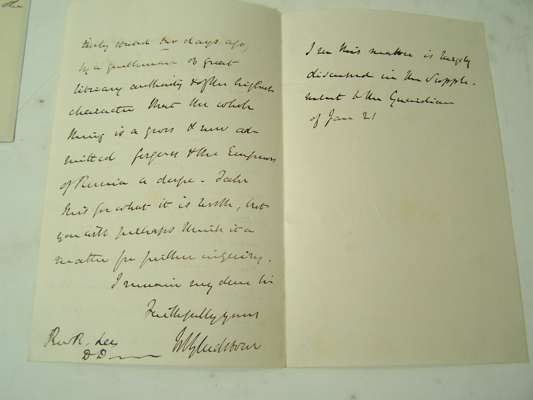 the
days ago,
by a gentleman of great
literary authority & of the highest
character that the whole
thing is a gross & now ad-
mitted forgery & the Emperor
of Russia a dupe. Take
this for what it is worth, but
you will perhaps think it a
matter for further inquiry.
I remain my dear Sir
Faithfully yours
WEGladstone
Rev R. Lee
D D
I see this matter is largely
discussed in the Supple-
ment to the Guardian
of Jan 21